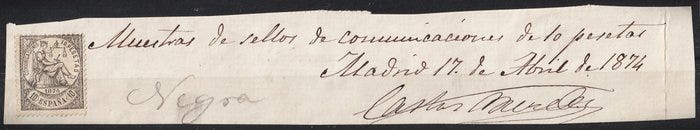 Muestras de sellos de comunicaciones de 10 pesetas
Madrid 17. de Abril de 1874
Negra
1874
10 ESPAÑA 10